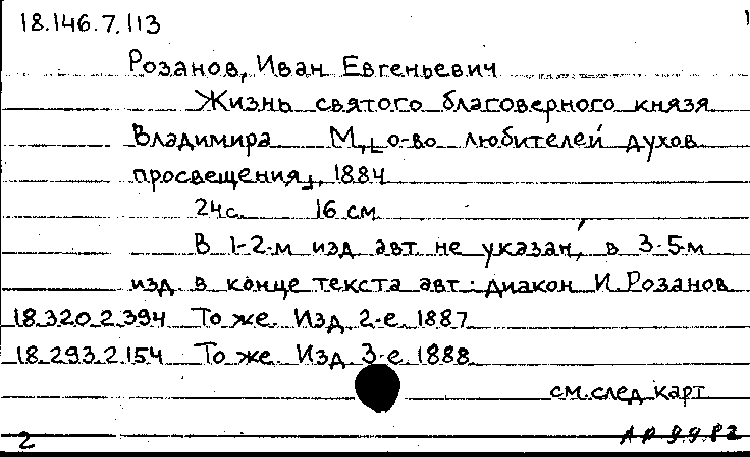 18.146.7.113
Розанов, Иван Евгеньевич
Жизнь святого благоверного князя
Владимира М., [о-во любителей духов.
просвещения], 1884
24с. 16 см.
В 1-2-м изд. авт. не указан, в 3-5-м
изд. в конце текста авт.: диакон И. Розанов
18.320.2.394 То же. Изд. 2-е. 1887
18.293.2.154 То же. Изд. 3-е. 1888
см. след. карт.
2